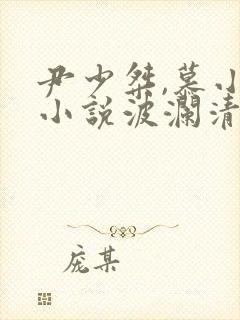 尹少桀,慕小
小说波澜清
庞某